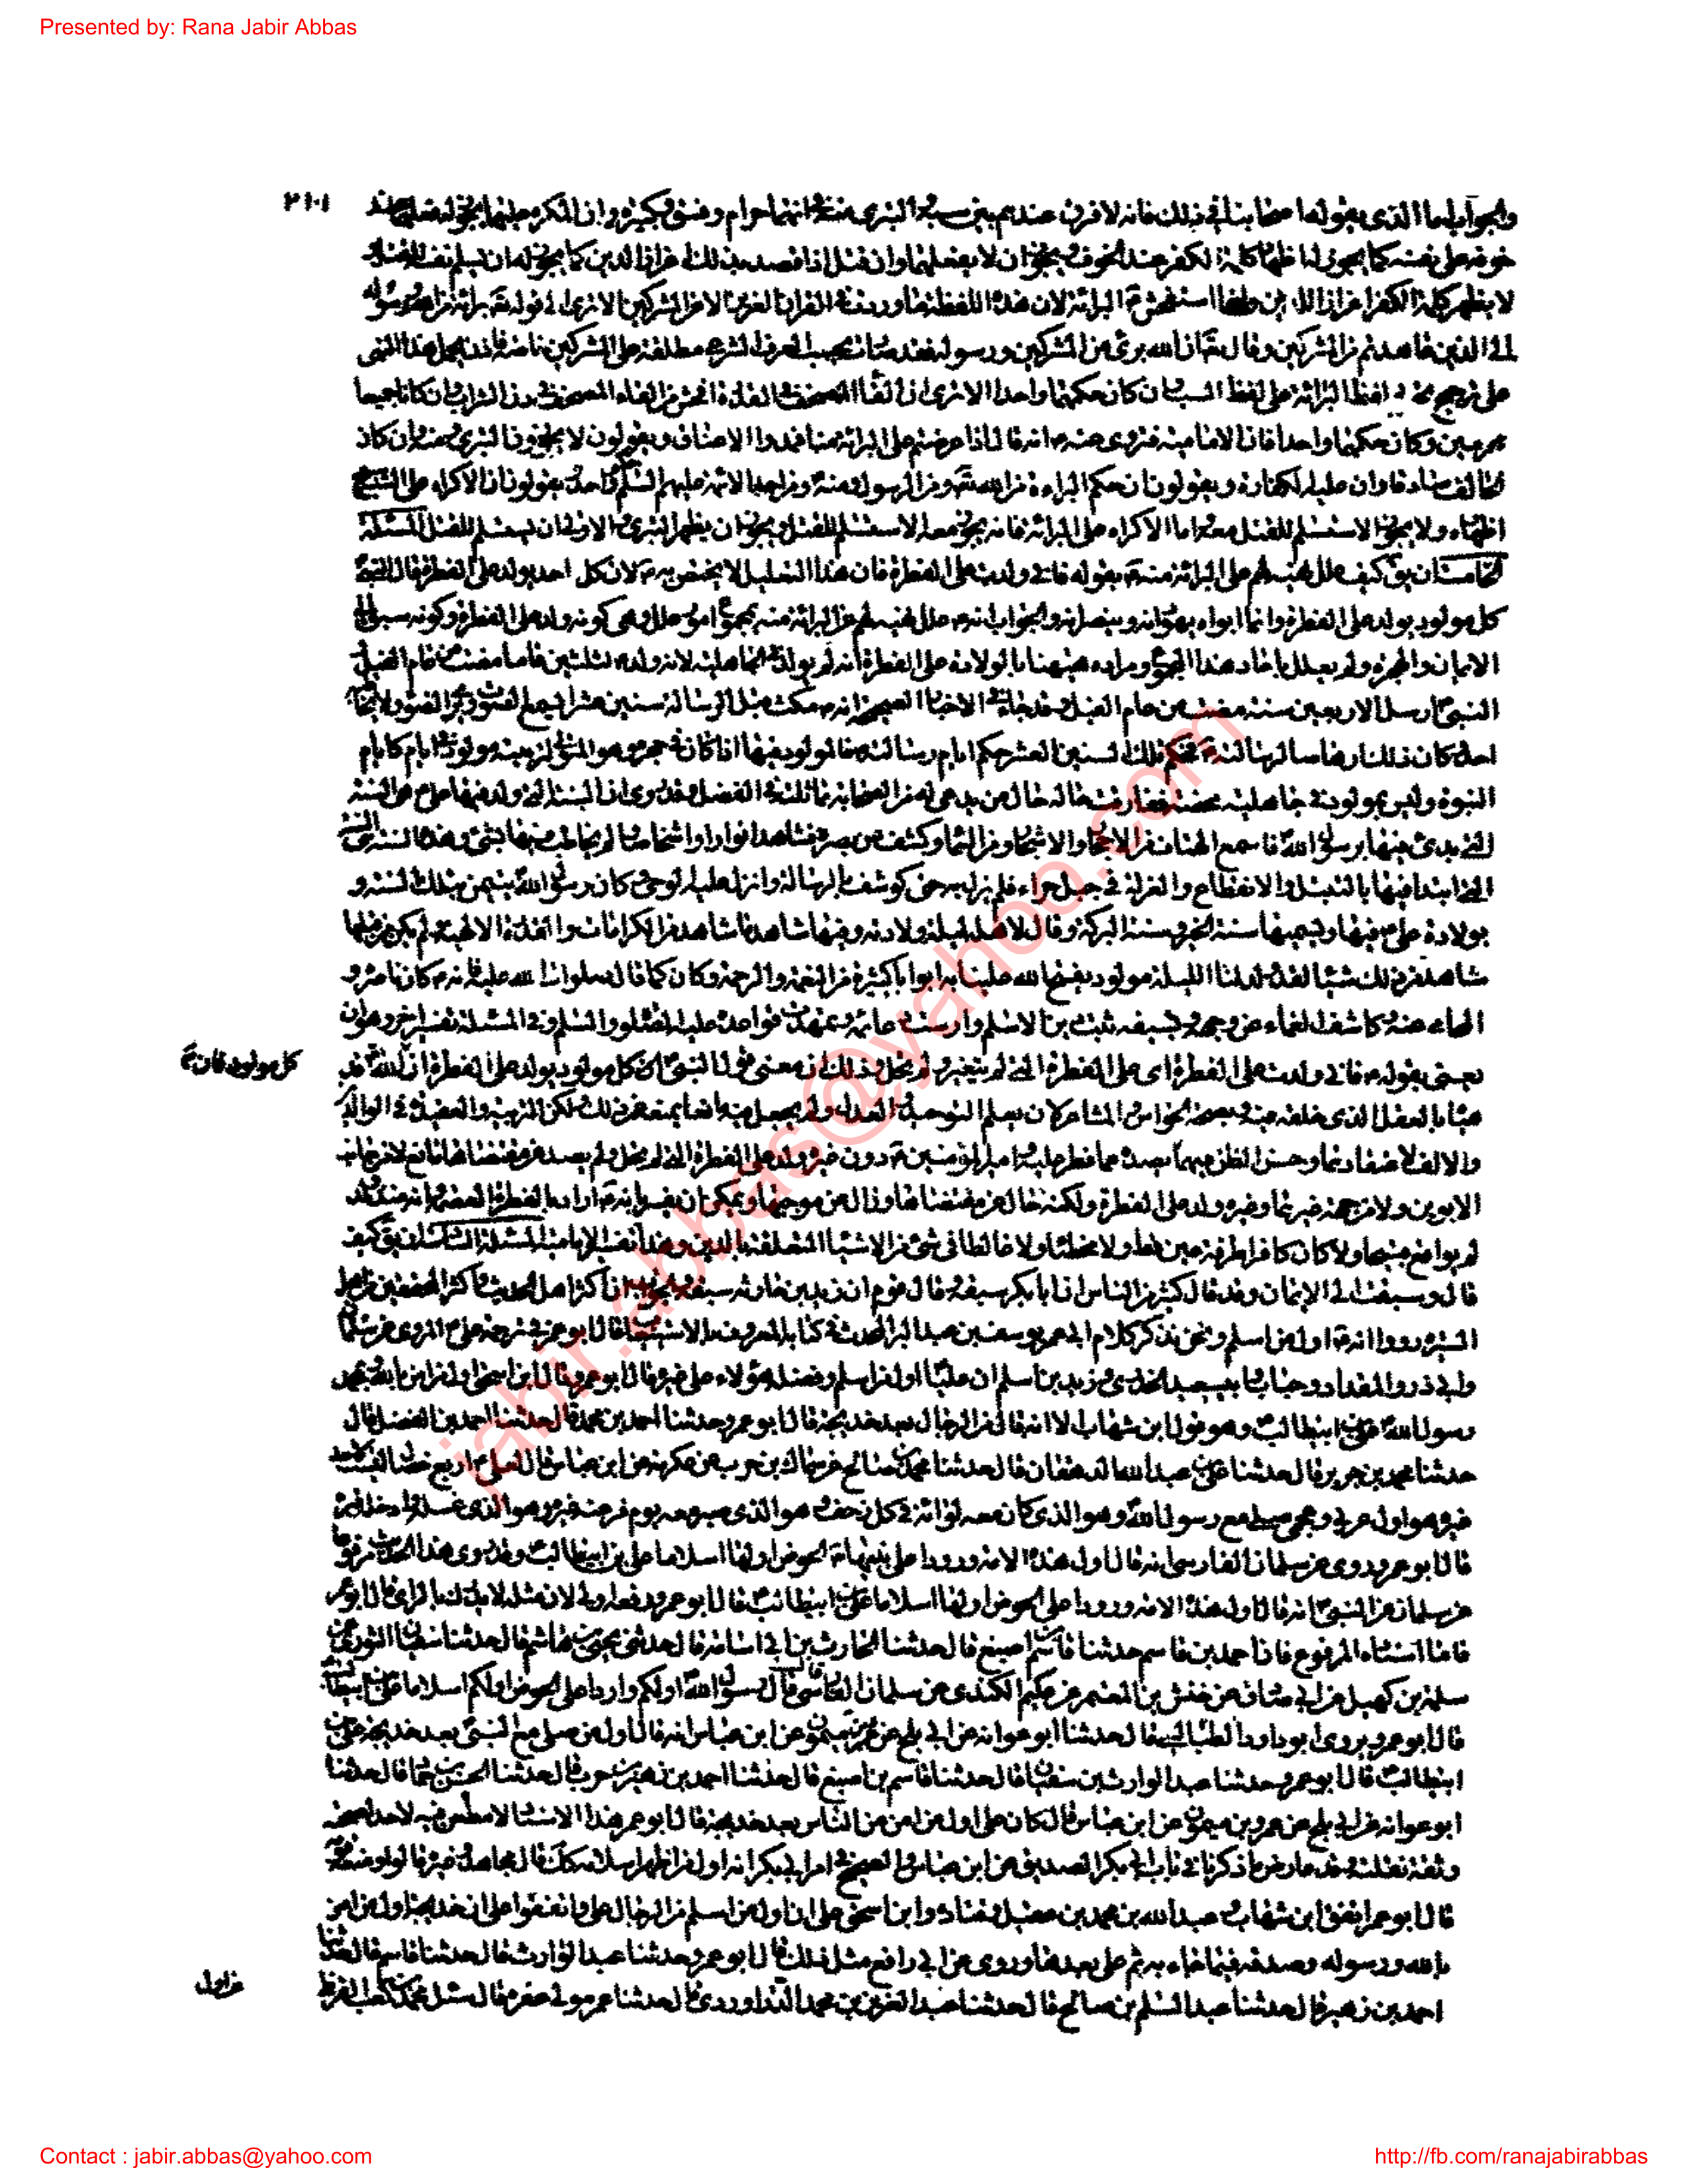 Presented by: Rana Jabir Abbas
٢١٠١
والجواب اما الذي يقوله اصحابنا في ذلك فانه لا فرق عندهم بين سبه والتبرى منه في انهما حرام وفسق وكبيرة وان المكره عليهما يجوز له فعلهما عند
خوفه على نفسه كما يجوز له اظهار كلمة الكفر عند الخوف ويجوز ان لا يفعلهما وان قتل اذا قصد بذلك اعزاز الدين كما يجوز له ان يسلم نفسه للقتل و
لا يظهر كلمة الكفر اعزازا للدين وانما استفحش البرائة لان هذه اللفظة ما وردت في القران العزيز الا عن المشركين الا ترى الى قوله تعالى برائة من الله ورسوله
الى الذين عاهدتم من المشركين وقال تعالى ان الله برئ من المشركين ورسوله فقد صارت بحسب العرف الشرعى مطلقة على المشركين خاصة فاذن يحمل هذا النهى
على ترجيح لفظ البرائة على لفظ السب وان كان حكمهما واحدا الا ترى ان القاء المصحف في القذر افحش من القاء المصحف في دن الشراب وان كانا جميعا
محرمين وكان حكمهما واحدا فاما الامامية فتروى عنه انه قال اذا عرضتم على البرائة منا فمدوا الاعناق ويقولون لا يجوز التبرى منه وان كان
الحالف صادقا وان عليه الكفارة ويقولون ان حكم البراءة من الله تعالى ومن الرسول ومنه ومن احد الائمة عليهم السلم واحد ويقولون ان الاكراه على السب يبيح
اظهاره ولا يجوز الاستسلام للقتل معه واما الاكراه على البرائة فانه يجوز معه الاستسلام للقتل ويجوز ان يظهر التبرى والاولى ان يستسلم للقتل المسئلة
الخامسة ان يق كيف علل نهيه لهم على البرائة منه بقوله فانى ولدت على الفطرة فان هذا التعليل لا يختص به لان كل احد يولد على الفطرة قال النبى
كل مولود يولد على الفطرة وانما ابواه يهودانه وينصرانه والجواب انه علل نهيه لهم عن البرائة منه بمجموع امور وعلل وهى كونه ولد على الفطرة وكونه سبق الى
الايمان والهجرة ولم يعلل باحاد هذا المجموع ومراده هيهنا بالولادة على الفطرة انه لم يولد في الجاهلية لانه ولد لثلثين عاما مضت من عام الفيل و
النبى ارسل لاربعين سنة مضت من عام الفيل وقد جاء في الاخبار الصحيحة انه مكث قبل الرسالة سنين عشرا يسمع الصوت ويرى الضوء ولا يخاطبه
احد وكان ذلك ارهاصا لرسالته فحكم تلك السنين العشر حكم ايام رسالته فالمولود فيها اذا كان في حجره وهو المتولى لتربيته مولود في ايام كايام
النبوة وليس بمولود في جاهلية محضة ففارقت حاله حال من يدعى له من الصحابة مماثلته في الفضل وقد روى ان السنة التى ولد فيها على هى السنة
التى بدئ فيها برسول الله فاسمع الهتاف من الاحجار والاشجار ومن السماء وكشف عن بصره فشاهد انوارا واشخاصا لم يخاطب فيها بشئ وهذه السنة هى السنة
التى ابتدا فيها بالتبتل والانقطاع والعزلة في جبل حراء فلم يزل به حتى كوشف بالرسالة وانزل عليه الوحى وكان رسول الله يتيمن بتلك السنة و
بولادة على فيها ويسميها سنة الخير وسنة البركة وقال لاهله ليلة ولادته وفيها شاهد ما شاهد من الكرامات والقدرة الالهية ولم يكن من قبلها
شاهد من ذلك شيئا لقد ولد لنا الليلة مولود يفتح الله علينا به ابوابا كثيرة من النعمة والرحمة وكان كما قال صلوات الله عليه فانه كان ناصره و
المحامى عنه وكاشف الغماء عن وجهه وبسيفه ثبت دين الاسلم وارست دعائمه وتمهدت قواعده عليه الصلوة والسلم وفي المسئلة تفسير اخر وهو ان
يعنى بقوله فانى ولدت على الفطرة اى على الفطرة التى لم تتغير ولم تحل وذلك ان معنى قول النبى كل مولود يولد على الفطرة ان الله تعالى قد
كل مولود فان الله
هيا بالعقل الذى خلقه فيه وبصحة الحواس والمشاعر لان يعلم التوحيد والعدل ولم يجعل فيه مانعا يمنعه من ذلك ولكن التربية والعقيدة في الوالدين
والالف لاعتقادهما وحسن الظن فيهما يصده عما فطر عليه وامير المؤمنين دون غيره ولد على الفطرة التى لم تحل ولم يصد عن مقتضاها مانع لا من جانب
الابوين ولا من جهة غيرهما وغيره ولد على الفطرة ولكنه حال عن مقتضاها وزال عن موجبها ويمكن ان يفسر بانه اراد بالفطرة العصمة وانه منذ ولد
لم يواقع قبيحا ولا كان كافرا طرفة عين قط ولا مخطئا ولا غالطا في شئ من الاشياء المتعلقة بالدين وهذا تفسير الامامية المسئلة السادسة ان يق كيف
قال وسبقت الى الايمان وقد قال كثير من الناس ان ابا بكر سبقه وقال قوم ان زيد بن حارثة سبقه والجواب ان اكثر اهل الحديث واكثر المحققين من اهل
السيرة رووا انه اول من اسلم ونحن نذكر كلام ابى عمر يوسف بن عبد البر المحدث في كتابه المعروف بالاستيعاب قال ابو عمر في ترجمة على المروى عن سلمان
وابى ذر والمقداد وخباب وابى سعيد الخدرى وزيد بن اسلم ان عليا اول من اسلم وفضله هؤلاء على غيره قال ابو عمر وقال ابن اسحق اول من امن بالله وبمحمد
رسول الله على بن ابيطالب وهو قول ابن شهاب الا انه قال من الرجال بعد خديجة قال ابو عمر وحدثنا احمد بن محمد قال حدثنا احمد بن الفضل قال
حدثنا محمد بن جرير قال حدثنا على بن عبد الله الدهقان قال حدثنا محمد بن صالح عن سماك بن حرب عن عكرمة عن ابن عباس قال لعلى اربع خصال ليست لاحد
غيره هو اول عربى وعجمى صلى مع رسول الله وهو الذى كان معه لوائه في كل زحف وهو الذى صبر معه يوم فر عنه غيره وهو الذى غسله وادخله قبره
قال ابو عمر وروى عن سلمان الفارسى انه قال اول هذه الامة ورودا على نبيها الحوض اولها اسلاما على بن ابيطالب وقد روى هذا الحديث مرفوعا
عن سلمان عن النبى انه قال اول هذه الامة ورودا على الحوض اولها اسلاما على بن ابيطالب قال ابو عمر ورفعه اولى لان مثله لا يدرك بالراى قال ابو عمر
فاما اسناد المرفوع فان احمد بن قاسم حدثنا قاسم بن اصبغ قال حدثنا الحارث بن ابى اسامة قال حدثنى يحيى بن هاشم قال حدثنا سفيان الثورى عن
سلمة بن كهيل عن ابى صادق عن حنش بن المعتمر عن عليم الكندى عن سلمان الفارسى قال قال رسول الله اولكم واردا على الحوض اولكم اسلاما على بن ابيطالب
قال ابو عمر وروى ابو داود الطيالسى قال حدثنا ابو عوانة عن ابى بلج عن عمرو بن ميمون عن ابن عباس انه قال اول من صلى مع النبى بعد خديجة على بن
ابيطالب قال ابو عمر وحدثنا عبد الوارث بن سفيان قال حدثنا قاسم بن اصبغ قال حدثنا احمد بن زهير بن حرب قال حدثنا الحسن بن حماد قال حدثنا
ابو عوانة عن ابى بلج عن عمرو بن ميمون عن ابن عباس قال كان على اول من امن من الناس بعد خديجة قال ابو عمر هذا الاسناد لا مطعن فيه لاحد لصحته
وثقة نقلته وقد عارض ما ذكرنا في باب ابى بكر الصديق عن ابن عباس والصحيح في امر ابى بكر انه اول من اظهر اسلامه كذلك قال مجاهد وغيره قالوا ومنعه قومه
قال ابو عمر اتفق ابن شهاب وعبد الله بن محمد بن عقيل وقتادة وابن اسحق على ان اول من اسلم من الرجال على واتفقوا على ان خديجة اول من امن
بالله ورسوله وصدقه فيما جاء به ثم على بعدها وروى عن ابى رافع مثل ذلك قال ابو عمر وحدثنا عبد الوارث قال حدثنا قاسم قال حدثنا
احمد بن زهير قال حدثنا عبد السلم بن صالح قال حدثنا عبد العزيز بن محمد الدراوردى قال حدثنا عمر مولى غفرة قال سئل محمد بن كعب القرظى
عن اول
jabir.abbas@yahoo.com
Contact : jabir.abbas@yahoo.com
http://fb.com/ranajabirabbas